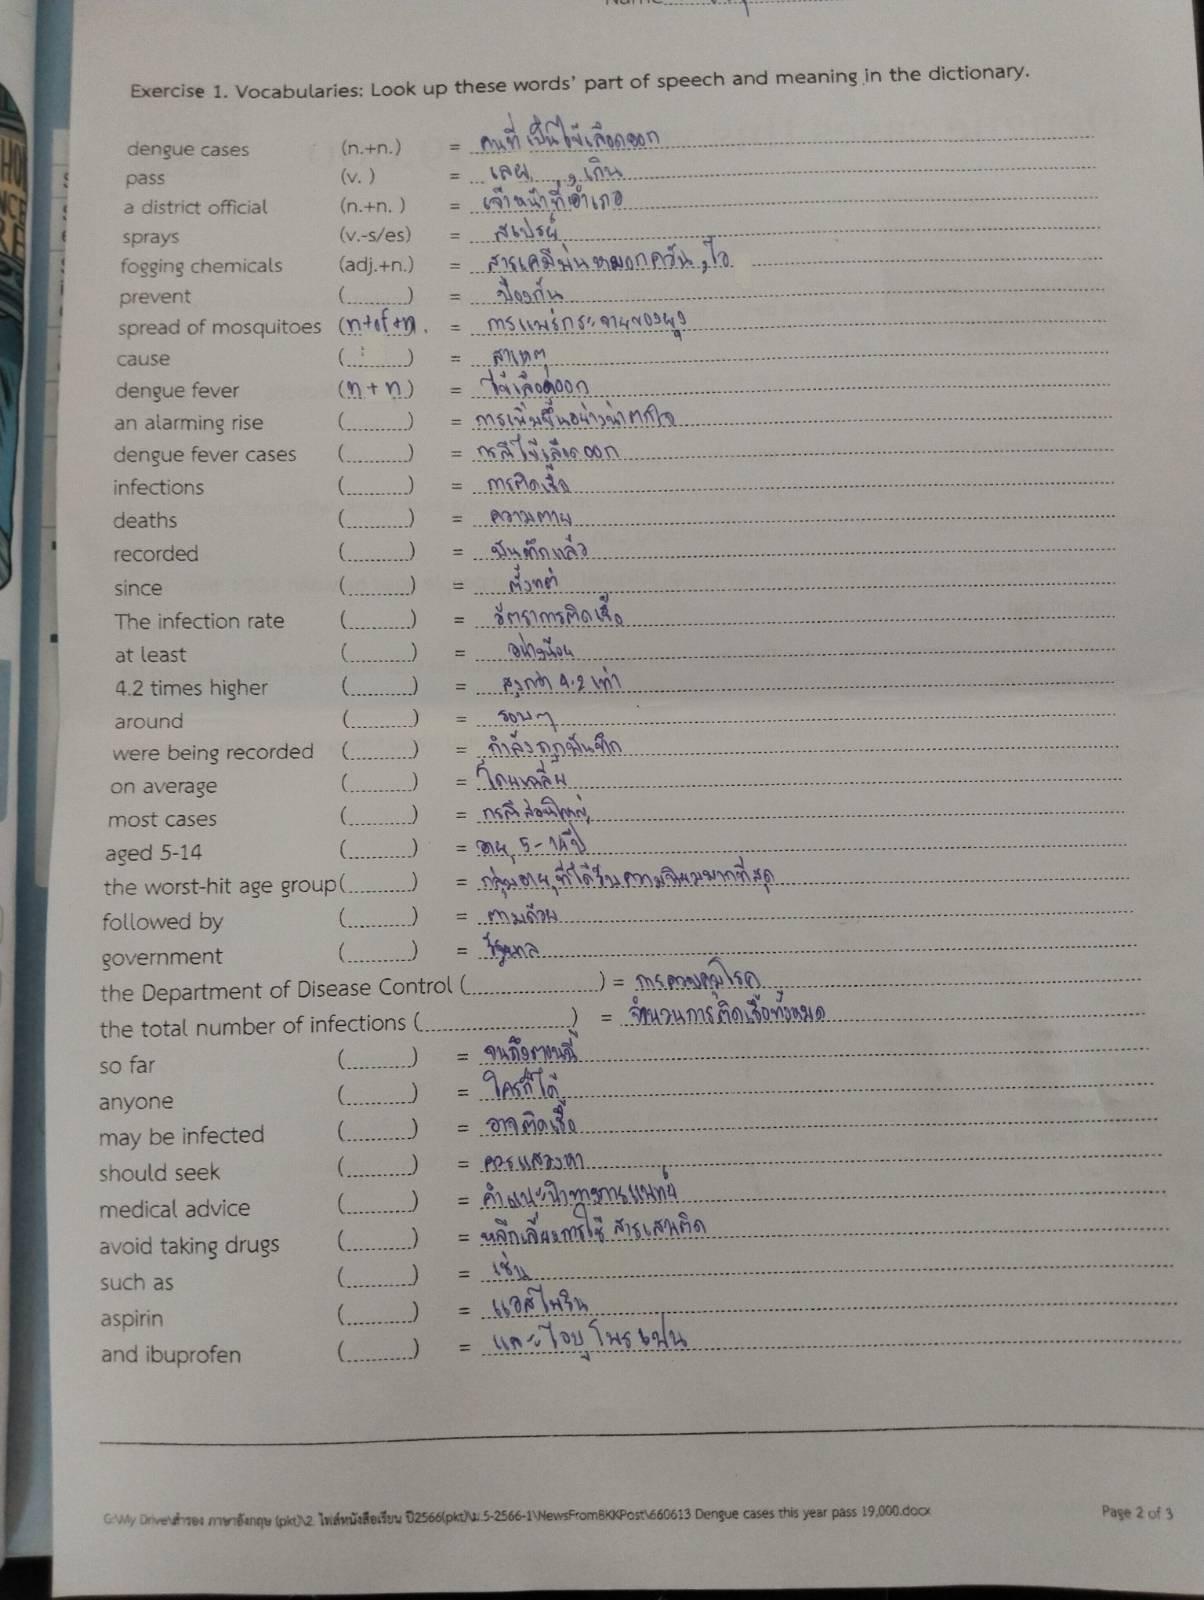 Exercise 1. Vocabularies: Look up these words' part of speech and meaning in the dictionary.
dengue cases (n.+n.) = คนที่เป็นไข้เลือดออก
pass (v. ) = เลย, , เกิน
a district official (n.+n. ) = เจ้าหน้าที่อำเภอ
sprays (v.-s/es) = สเปรย์
fogging chemicals (adj.+n.) = สารเคมีพ่นหมอกควัน, ไอ
prevent (........) = ป้องกัน
spread of mosquitoes (n+of+n. = การแพร่กระจายของยุง
cause (........) = สาเหตุ
dengue fever (n + n) = ไข้เลือดออก
an alarming rise (........) = การเพิ่มขึ้นอย่างน่าตกใจ
dengue fever cases (........) = กรณีไข้เลือดออก
infections (........) = การติดเชื้อ
deaths (........) = ความตาย
recorded (........) = บันทึกแล้ว
since (........) = ตั้งแต่
The infection rate (........) = อัตราการติดเชื้อ
at least (........) = อย่างน้อย
4.2 times higher (........) = สูงกว่า 4.2 เท่า
around (........) = รอบๆ
were being recorded (........) = กำลังถูกบันทึก
on average (........) = โดยเฉลี่ย
most cases (........) = กรณีส่วนใหญ่
aged 5-14 (........) = อายุ 5-14 ปี
the worst-hit age group(........) = กลุ่มอายุที่ได้รับความนิยมมากที่สุด
followed by (........) = ตามด้วย
government (........) = รัฐบาล
the Department of Disease Control (..................) = การควบคุมโรค
the total number of infections (.....................) = จำนวนการติดเชื้อทั้งหมด
so far (........) = จนถึงตอนนี้
anyone (........) = ใครก็ได้
may be infected (........) = อาจติดเชื้อ
should seek (........) = ควรแสวงหา
medical advice (........) = คำแนะนำทางการแพทย์
avoid taking drugs (........) = หลีกเลี่ยงการใช้ สารเสพติด
such as (........) = เช่น
aspirin (........) = แอสไพริน
and ibuprofen (........) = และไอบูโพรเฟน
G:\My Drive\สำรอง ภาษาอังกฤษ (pkt)\2. ไฟล์หนังสือเรียน ปี2566(pkt)\ม.5-2566-1\NewsFromBKKPost\660613 Dengue cases this year pass 19,000.docx Page 2 of 3